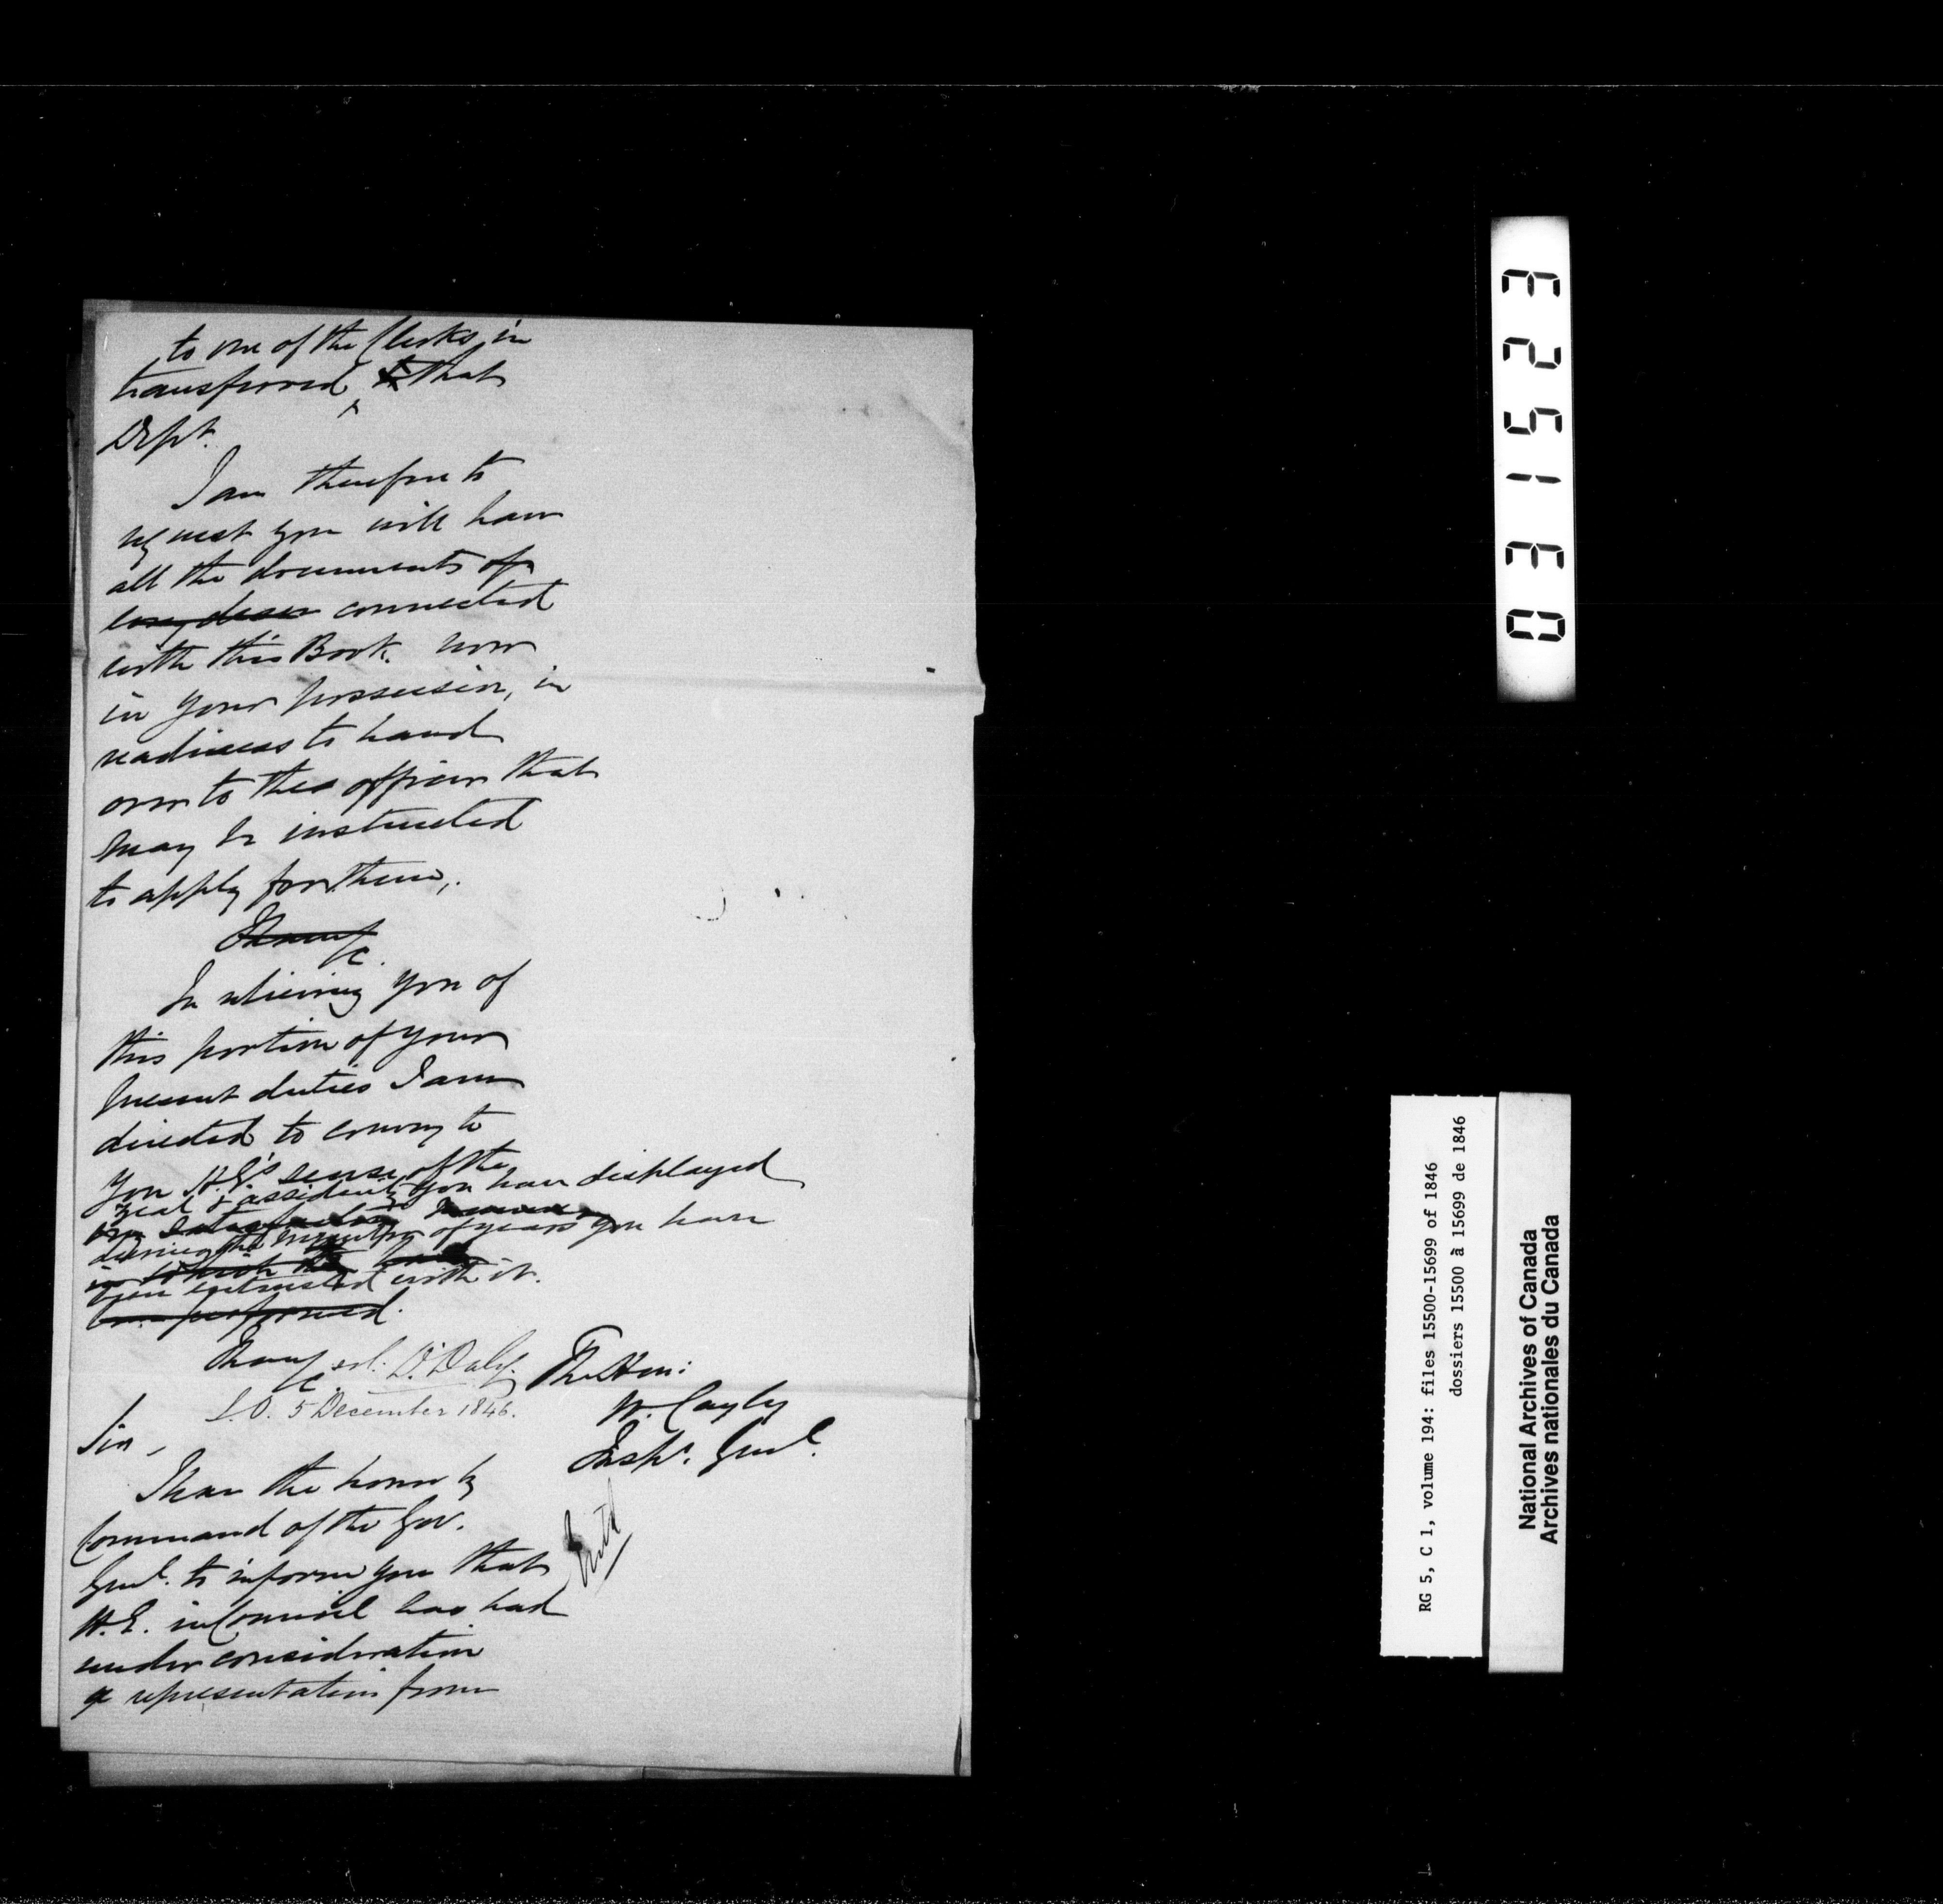 to one of the Clerks in
transferred to that
Dept.
I am therefore to
request you will have
all the documents of
connected
with this Book now
in your possession, in
readiness to hand
over to the officer that
may be instructed
to apply for them,
I have &c.
In relieving you of
this portion of your
present duties I am
directed to convey to
you H.E's sense of the
zeal & assiduity you have displayed
satisfactory manner
during the number of years you have
in which
been entrusted with it.
performed.
I have &c. sd: D. Daly.
S.O. 5 December 1846.
The Hon:
W. Cayley
Inspr. Genl.
Sir,
I have the honor by
Command of the Gov.
Genl. to inform you that
H.E. in Council has had
under consideration
a representation from
Entd
03 15 23
RG 5, C 1, volume 194: files 15500-15699 of 1846
dossiers 15500 à 15699 de 1846
National Archives of Canada
Archives nationales du Canada